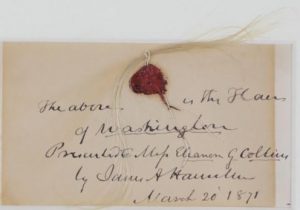 The above is the Hair
of Washington
Presented Miss Eleanor G Collins
by James A Hamilton
March 20 1871